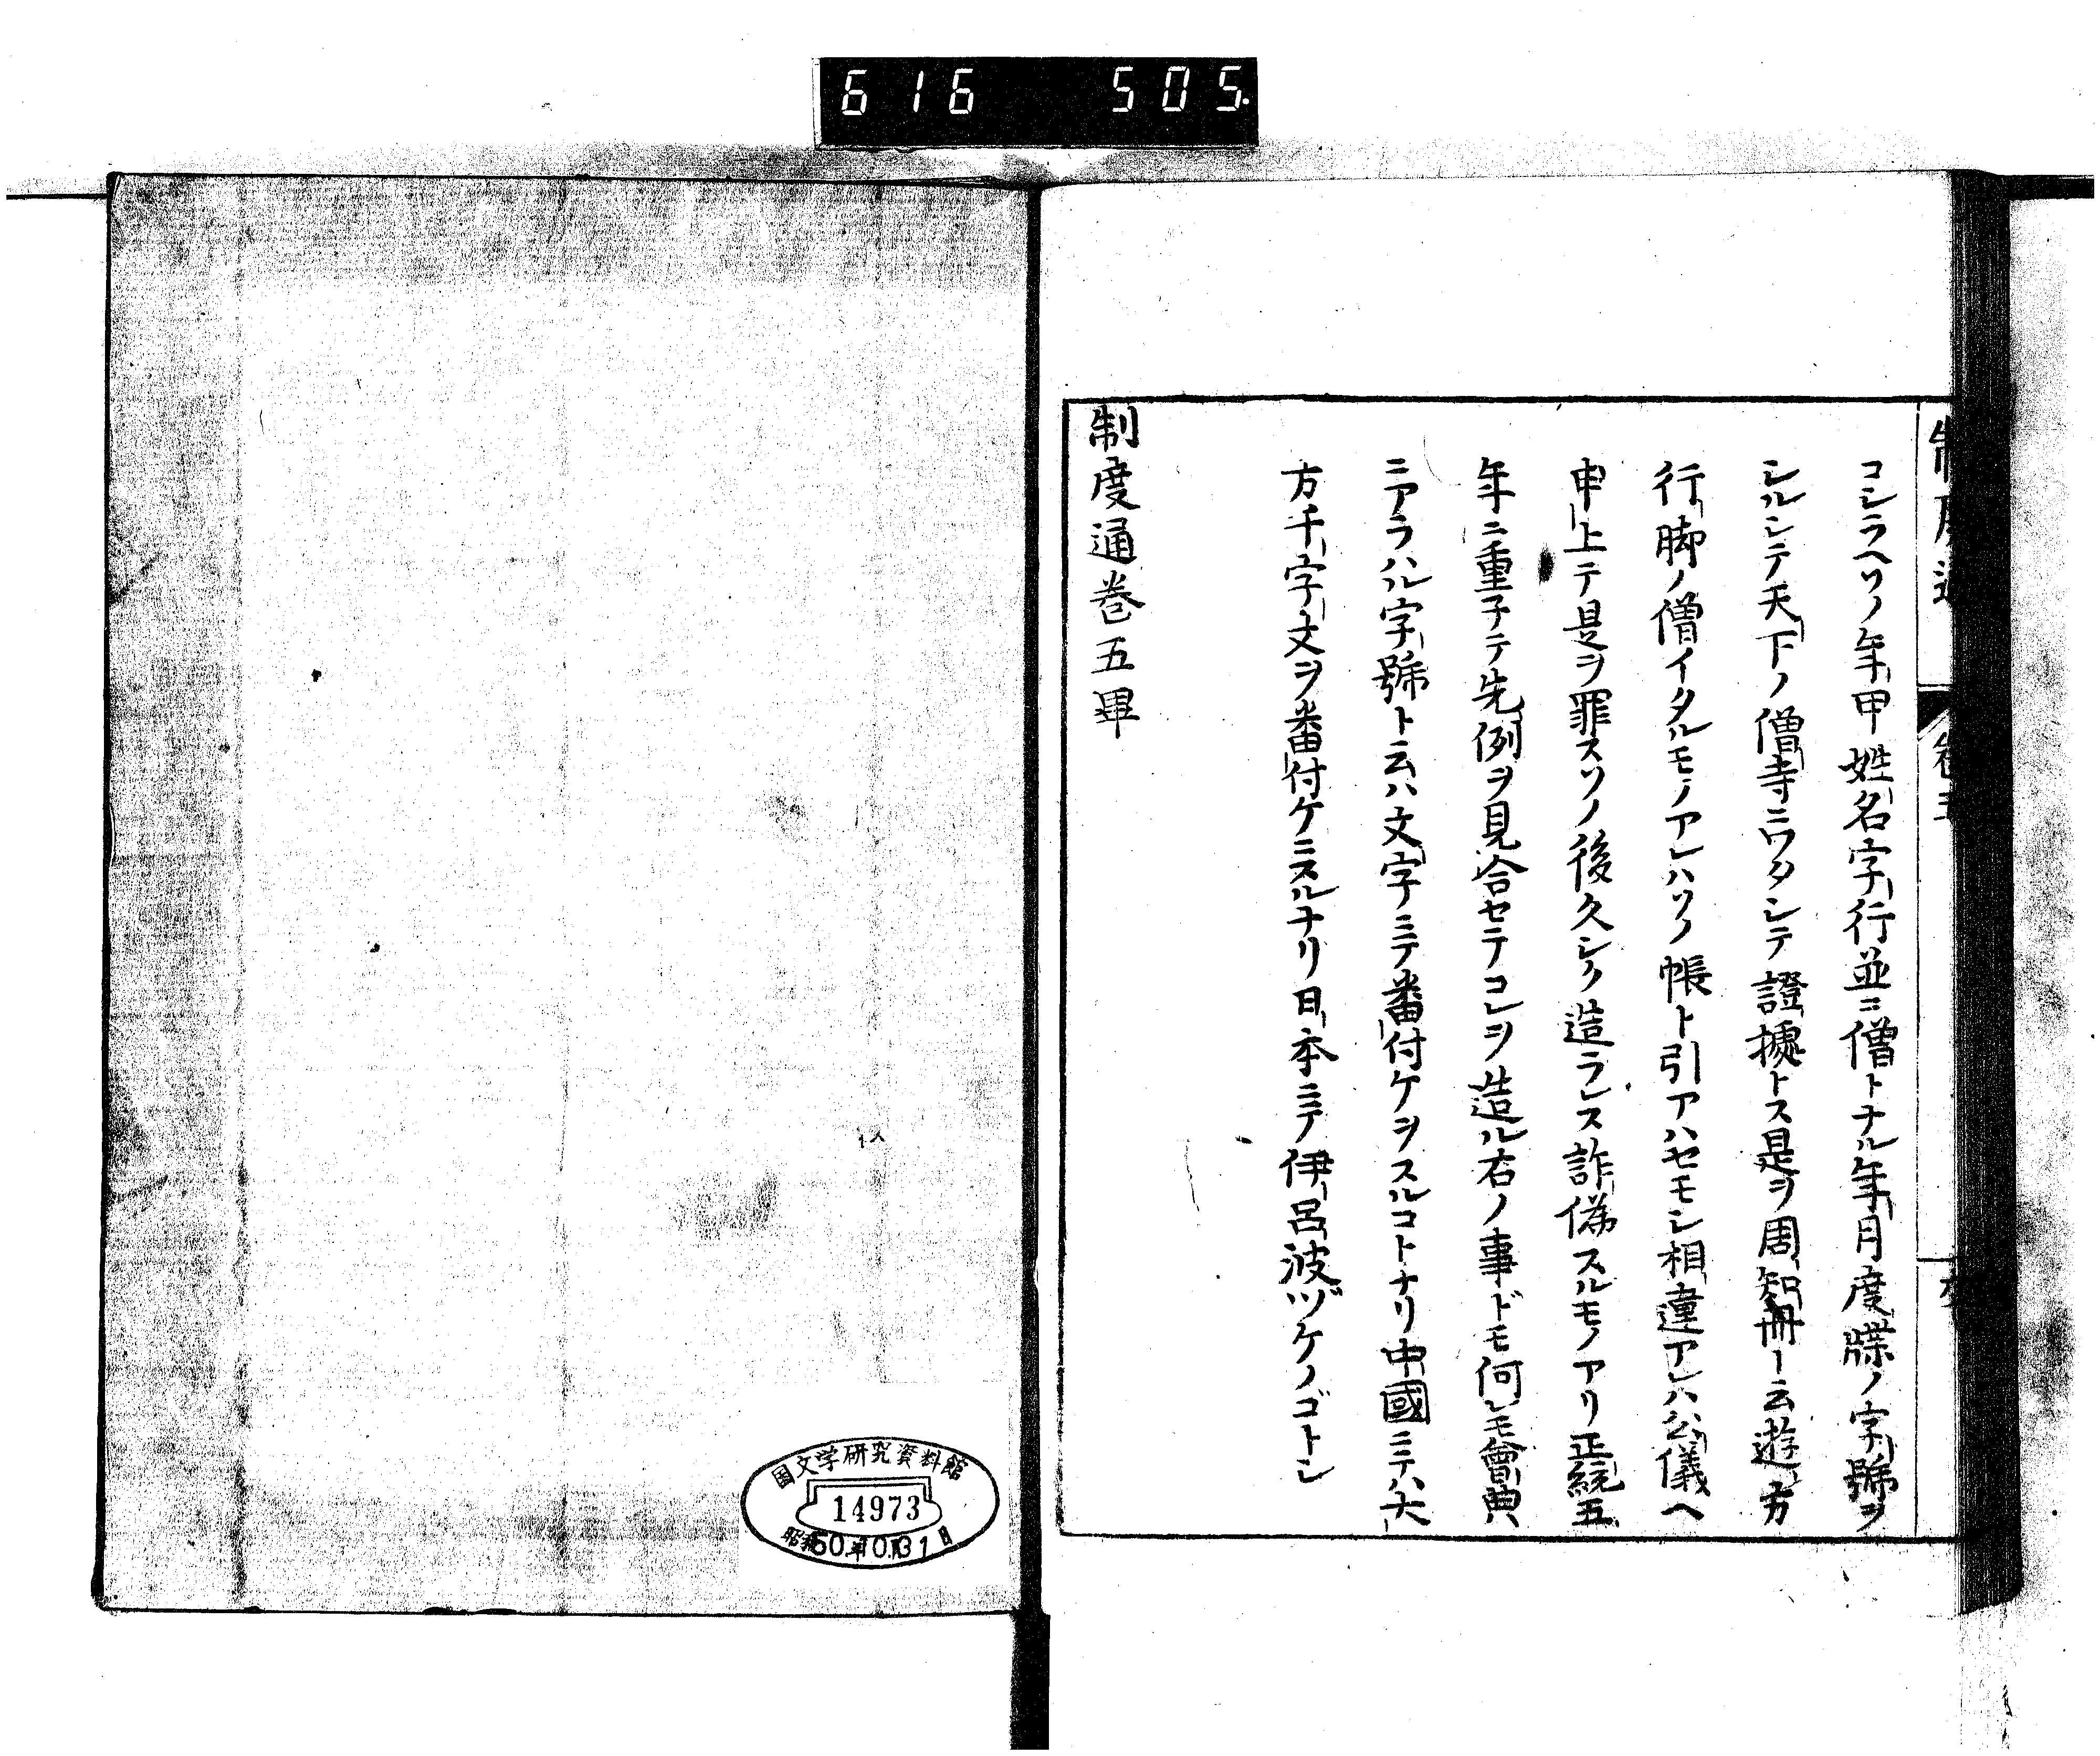 616 505.
コシラヘソノ年甲姓名字行並ニ僧トナル年月度牒ノ字號ヲ
シルシテ天下ノ僧寺ニワタシテ證據トス是ヲ周知冊ト云遊方
行脚ノ僧イタルモノアレハソノ帳ト引アハセモシ相違アレハ公儀ヘ
申上テ是ヲ罪スソノ後久シク造ラレス詐僞スルモノアリ正統五
年ニ重子テ先例ヲ見合セテコレヲ造ル右ノ事ドモ何レモ會典
ニアラハル字號ト云ハ文字ニテ番付ケヲスルコトナリ中國ニテハ大
方千字文ヲ番付ケニスルナリ日本ニテ伊呂波ヅケノゴトシ
制度通巻五畢
国文学研究資料館
14973
昭和50年10月31日